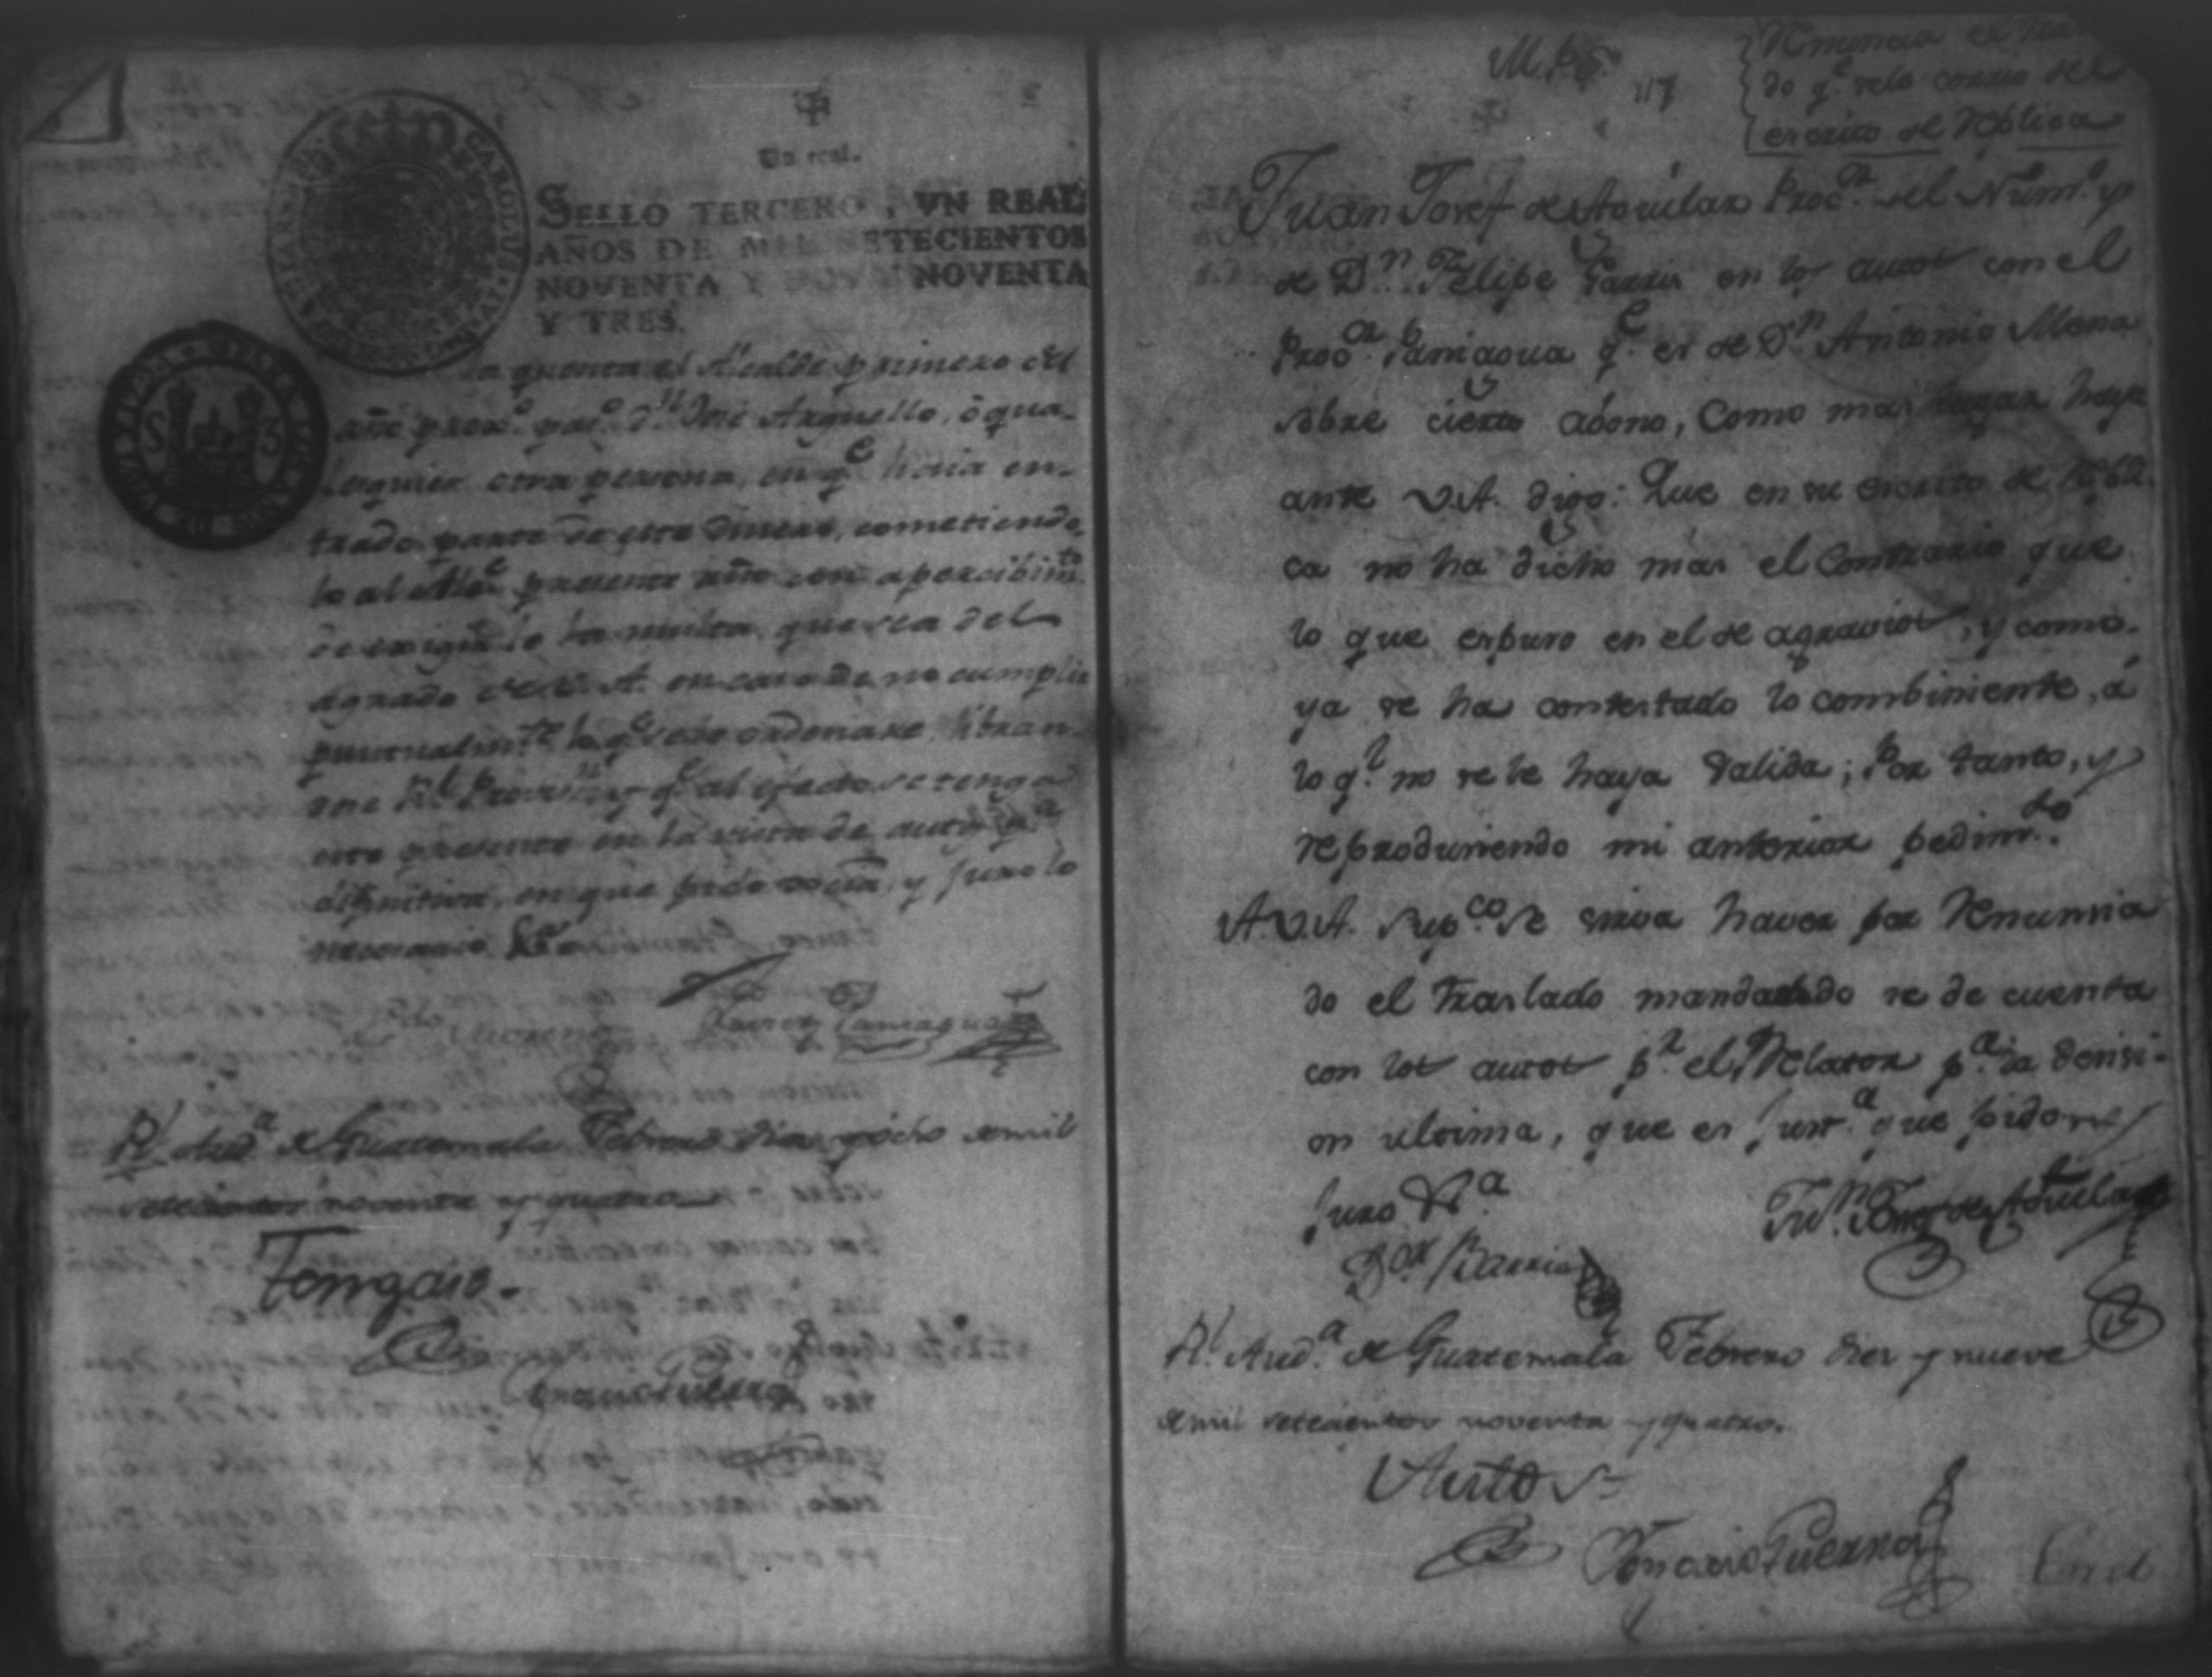 Un real.
SELLO TERCERO, VN REAL,
AÑOS DE MIL SETECIENTOS
NOVENTA Y DOS Y NOVENTA
Y TRES.
CAROLUS
el Alcalde primero del
año prox.º pas.º Dn José Arguello, ó qua-
lesquier otra persona, en q.e haia en-
trado parte de este dinero, cometiendo-
lo al Alc.e presente año con apercibim.to
de exigirle la multa que sea del
agrado de V. A. en caso de no cumplir
puntualm.te lo q.e se le ordenare, libran-
dose R.l Provis.n y q.e al efecto se tenga
este presente en la vista de autos p.a
difinitiva, en que pido y juro lo
necesario &.a
Paniagua
R.l Aud.a de Guatemala Febrero dies y ocho de mil
setecientos noventa y quatro
Tengase.
Ignacio Guerra
117
Renuncia el tras
do q.e se le corrio del
escrito de Replica
Juan Josef de Aguilar Proc.or del Núm.o y
de D.n Felipe en los autos con el
Proc.or Paniagua q.e es de D.n Antonio Mena
sobre cierto abono, Como mas lugar haya
ante V.A. digo: Que en su escrito de Repli-
ca no ha dicho mas el Contrario que
lo que espuso en el de agravios, y como
ya se ha contestado lo combiniente, á
lo q.e no se le haya salida; Por tanto, y
reproduciendo mi anterior pedim.to
A.V.A. Sup.co Se sirva haver por Renuncia
do el Traslado mandando se de cuenta
con los autos p.r el Relator p.a la decisi-
on ultima, que es Just.a que pido
Juro &.a
Ju.n Josef de Aguilar
D.or Barrio
R.l Aud.a de Guatemala Febrero dies y nueve
de mil setecientos noventa y quatro.
Autos
Ignacio Guerra